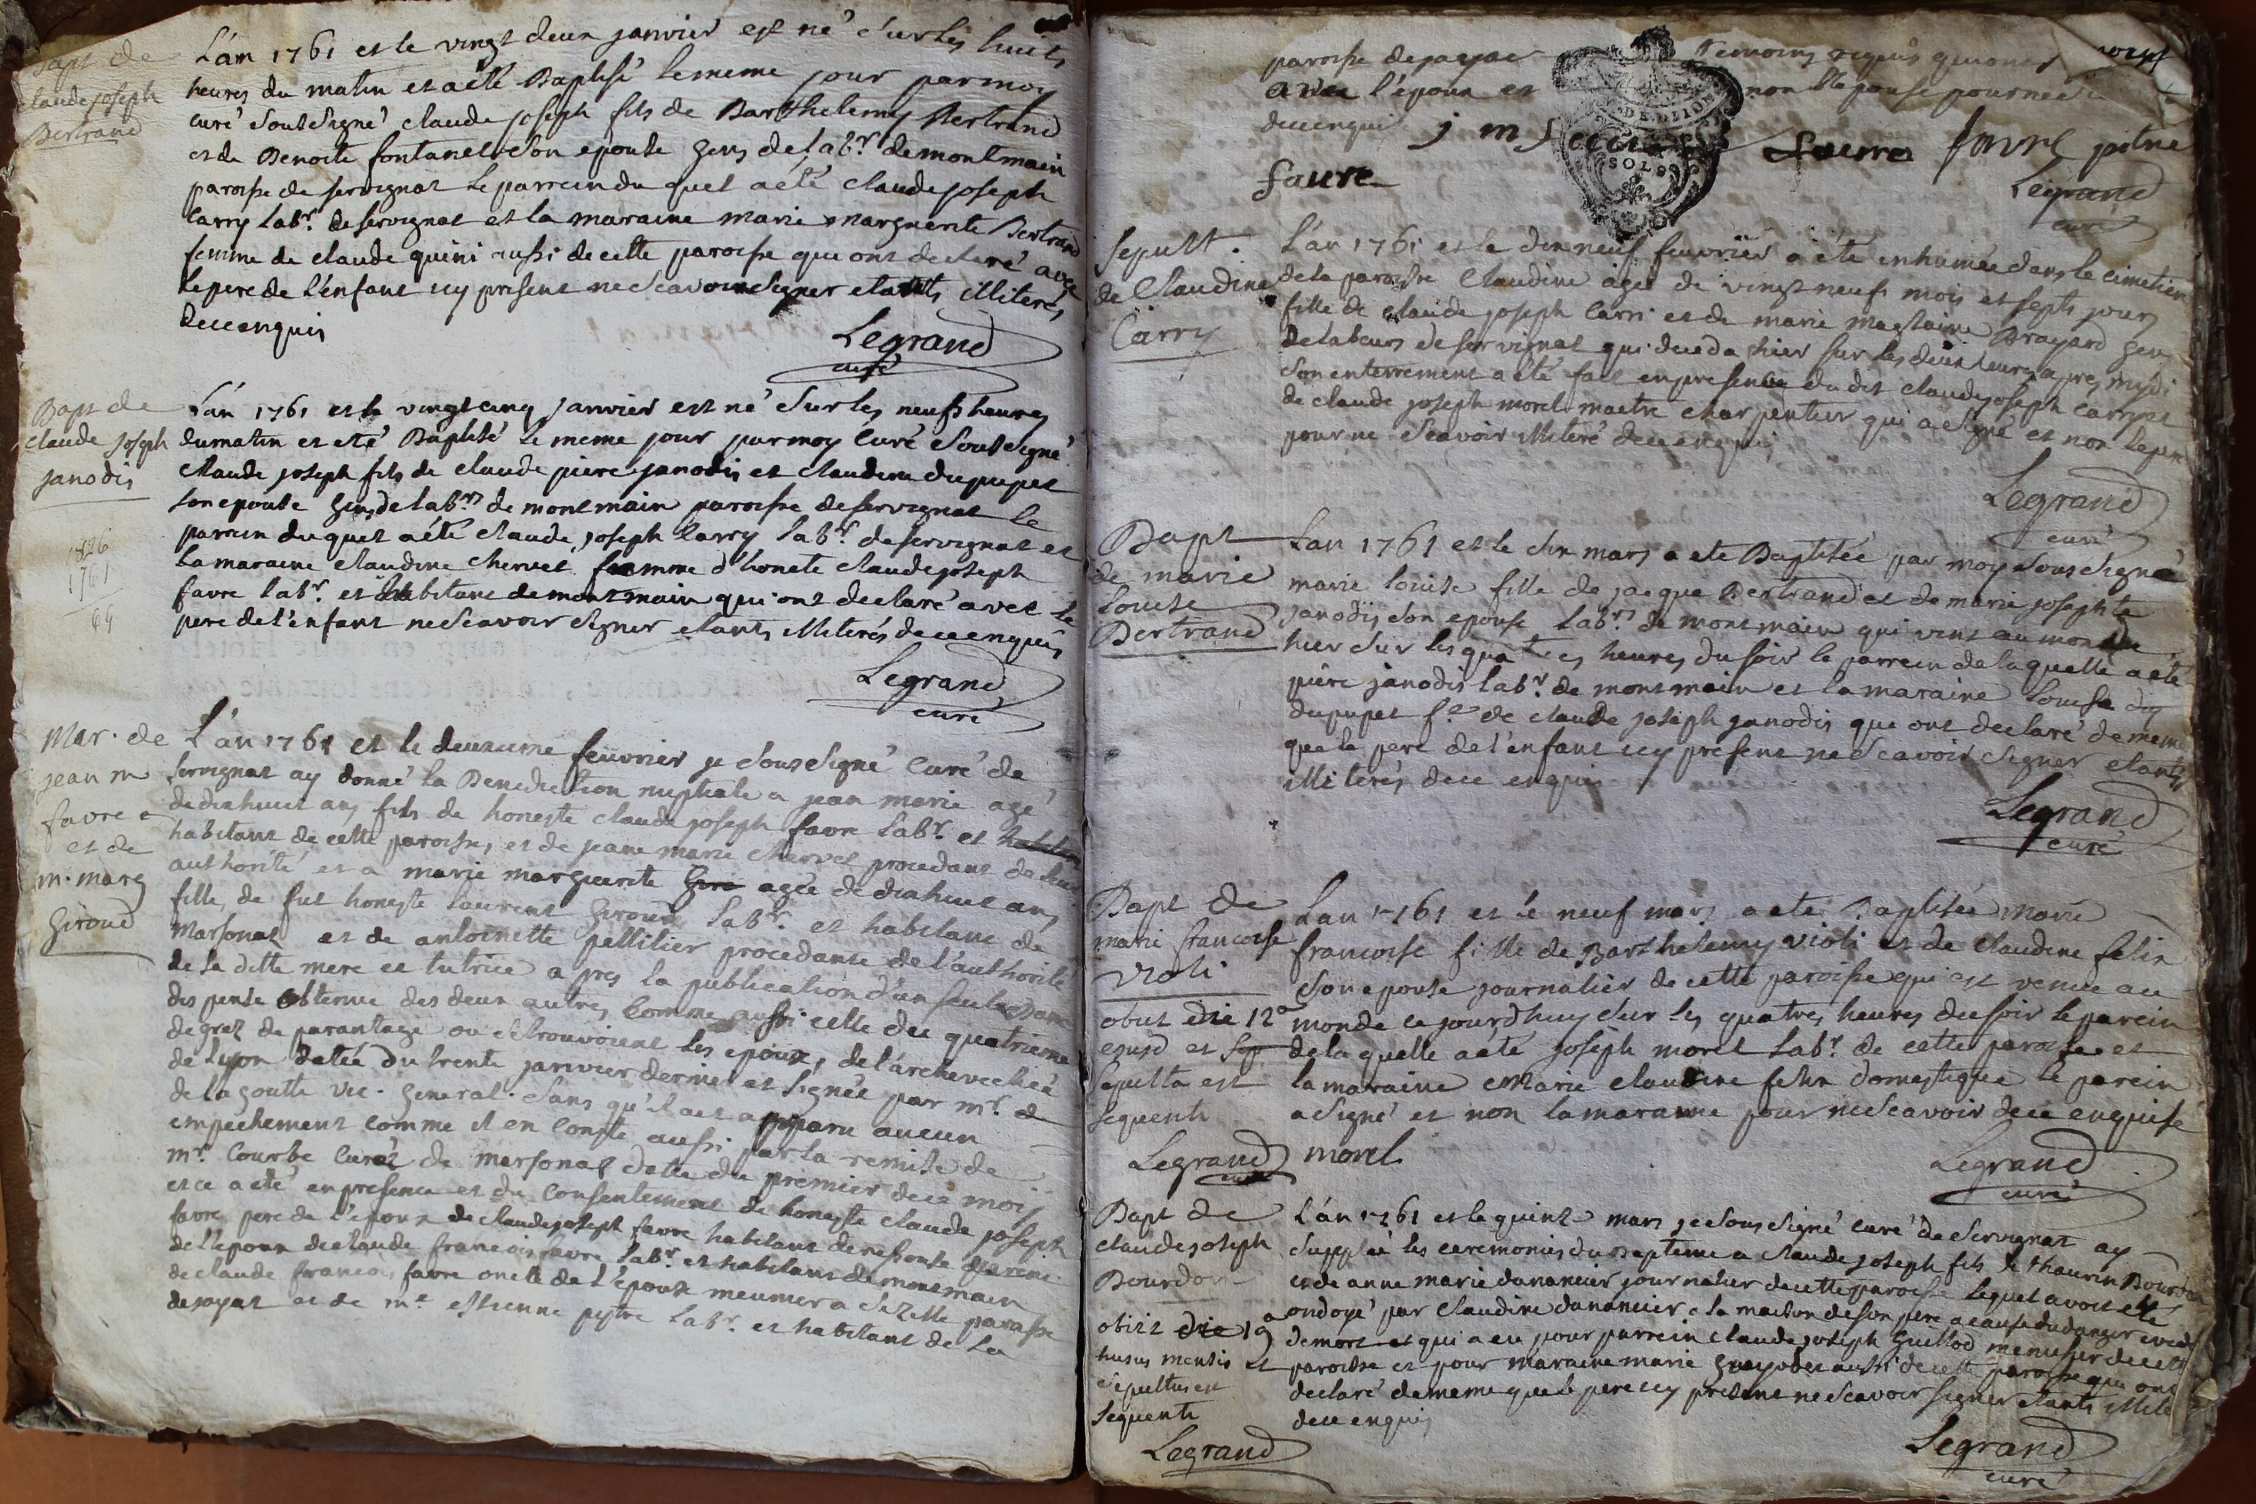 Bapt de
claude joseph
Bertrand
L'an 1761 et le vingt deux janvier est né sur les huits
heures du matin et a eté Baptisé le meme jour par moy
curé soussigné claude joseph fils de Barthelemy Bertrand
et de Benoite fontanel son epouse gens de labr. de montmain
paroisse de servignat le parrein du quel a été claude joseph
Carry labr. de servignat et la maraine marie marguerite Bertrand
femme de claude quini aussi de cette paroisse que ont declaré avec
le pere de l'enfant icy present ne scavoir signer etants illiterés
de ce enquis
Legrand
curé
Bapt de
claude joseph
janodis
L'an 1761 et le vingt cinq janvier est né sur les neufs heures
du matin et eté Baptisé le meme jour par moy curé soussigné
claude joseph fils de claude piere janodis et claudine dupupet
son epouse gens de labrs de montmain paroisse de servignat le
parrein du quel a été claude joseph Carry labr. de servignat et
la maraine claudine Chervet femme d'honete claude joseph
favre labr. et habitant de montmain qui ont declaré avec le
pere de l'enfant ne scavoir signer etants illiterés de ce enquis
1826
1761
64
Legrand
curé
Mar. de
jean m
favre
et de
m. marg
Giroud
L'an 1761 et le deuxieme feuvrier je soussigné curé de
servignat ay donné la Benediction nuptiale a jean marie agé
de dixhuit ans fils de honeste claude joseph favre labr. et
habitant de cette paroisse, et de jeane marie Chervet procedant de leur
authorité et a marie marguerite agée de dixhuit ans
fille de fut honeste laurent Giroud labr. et habitant de
marsonat et de antoinette pellitier procedante de l'authorité
de sa ditte mere et tutrice apres la publication d'un seul
dispense obtenue des deux autres comme aussi celle du quatrieme
degrez de parantage ou se trouvoient les epoux, de l'archeveché
de lyon datée du trente janvier dernier et signée par mr. de
de la goutte vic. general. sans qu'il aet apparu aucun
empechement comme il en conste aussi par la remise de
mr. Courbe curé de marsonat datée du premier de ce mois
et ce a eté en presence et du consentement de honeste claude joseph
favre pere de l'epoux de claude joseph favre habitant de
de l'epoux de claude francois favre labr. et habitant de montmain
de claude francois favre oncle de l'epoux meunier a sizelle paroisse
de jayat et de me. estienne pytre labr. et habitant de la
paroisse de jayat temoins requis qui ont
avec l'epoux et non l'epouse pour ne
de ce enquis
favre
Legrand
curé
Sepult.
de Claudine
Carry
L'an 1761 et le dixneuf feuvrier a été inhumée dans le cimetiere
de la paroisse Claudine agée de vingt neufs mois et septs jours
fille de claude joseph Carri et de marie Brayard gens
de labeurs de servignat qui deceda hier sur les deux heures apres midi
son enterrement a été fait en presence du dit claude joseph Carry et
de claude joseph morel maitre charpentier qui a signé et non le pere
pour ne scavoir illiteré de ce enquis
Legrand
curé
Bapt
de marie
louise
Bertrand
L'an 1761 et le six mars a eté Baptisée par moy soussigné
marie louise fille de jacque Bertrand et de marie josephte
janodis son epouse labrs de montmain qui vint au monde
hier sur les quatres heures du soir le parrein de laquelle a eté
piere janodis labr. de montmain et la maraine louise du
dupupet fe de claude joseph janodis que ont declaré de meme
que le pere de l'enfant icy present ne scavoir signer etants
illiterés de ce enquis
Legrand
curé
Bapt de
marie francoise
violi
obiit die 12a
ejusd et
sepulta est
sequenti
Legrand
curé
L'an 1761 et le neuf mars a eté Baptisée marie
francoise fille de Barthelemy violi et de Claudine felix
son epouse journalier de cette paroisse qui est venue au
monde ce jourdhuy sur les quatres heures du soir le parein
de la quelle a été joseph morel labr. de cette paroisse et
la maraine marie claudine felix domestique le parein
a signé et non la maraine pour ne scavoir de ce enquise
morel
Legrand
curé
Bapt de
claude joseph
Bourdon
obiit die 19a
hujus mensis et
sepultus est
sequenti
Legrand
L'an 1761 et le quinze mars je soussigné curé de servignat ay
supplée les ceremonies du Bapteme a claude joseph fils de thaurin Bourdon
et de anne marie danancier journalier de cette paroisse lequel avoit eté
ondoyé par claudine danancier a la maison de son pere a cause du danger
de mort et qui a eu pour parrein claude joseph Guillod menusier de cette
paroisse et pour maraine marie aussi de cette paroisse que ont
declaré de meme que le pere icy present ne scavoir signer etants
de ce enquis
Legrand
curé